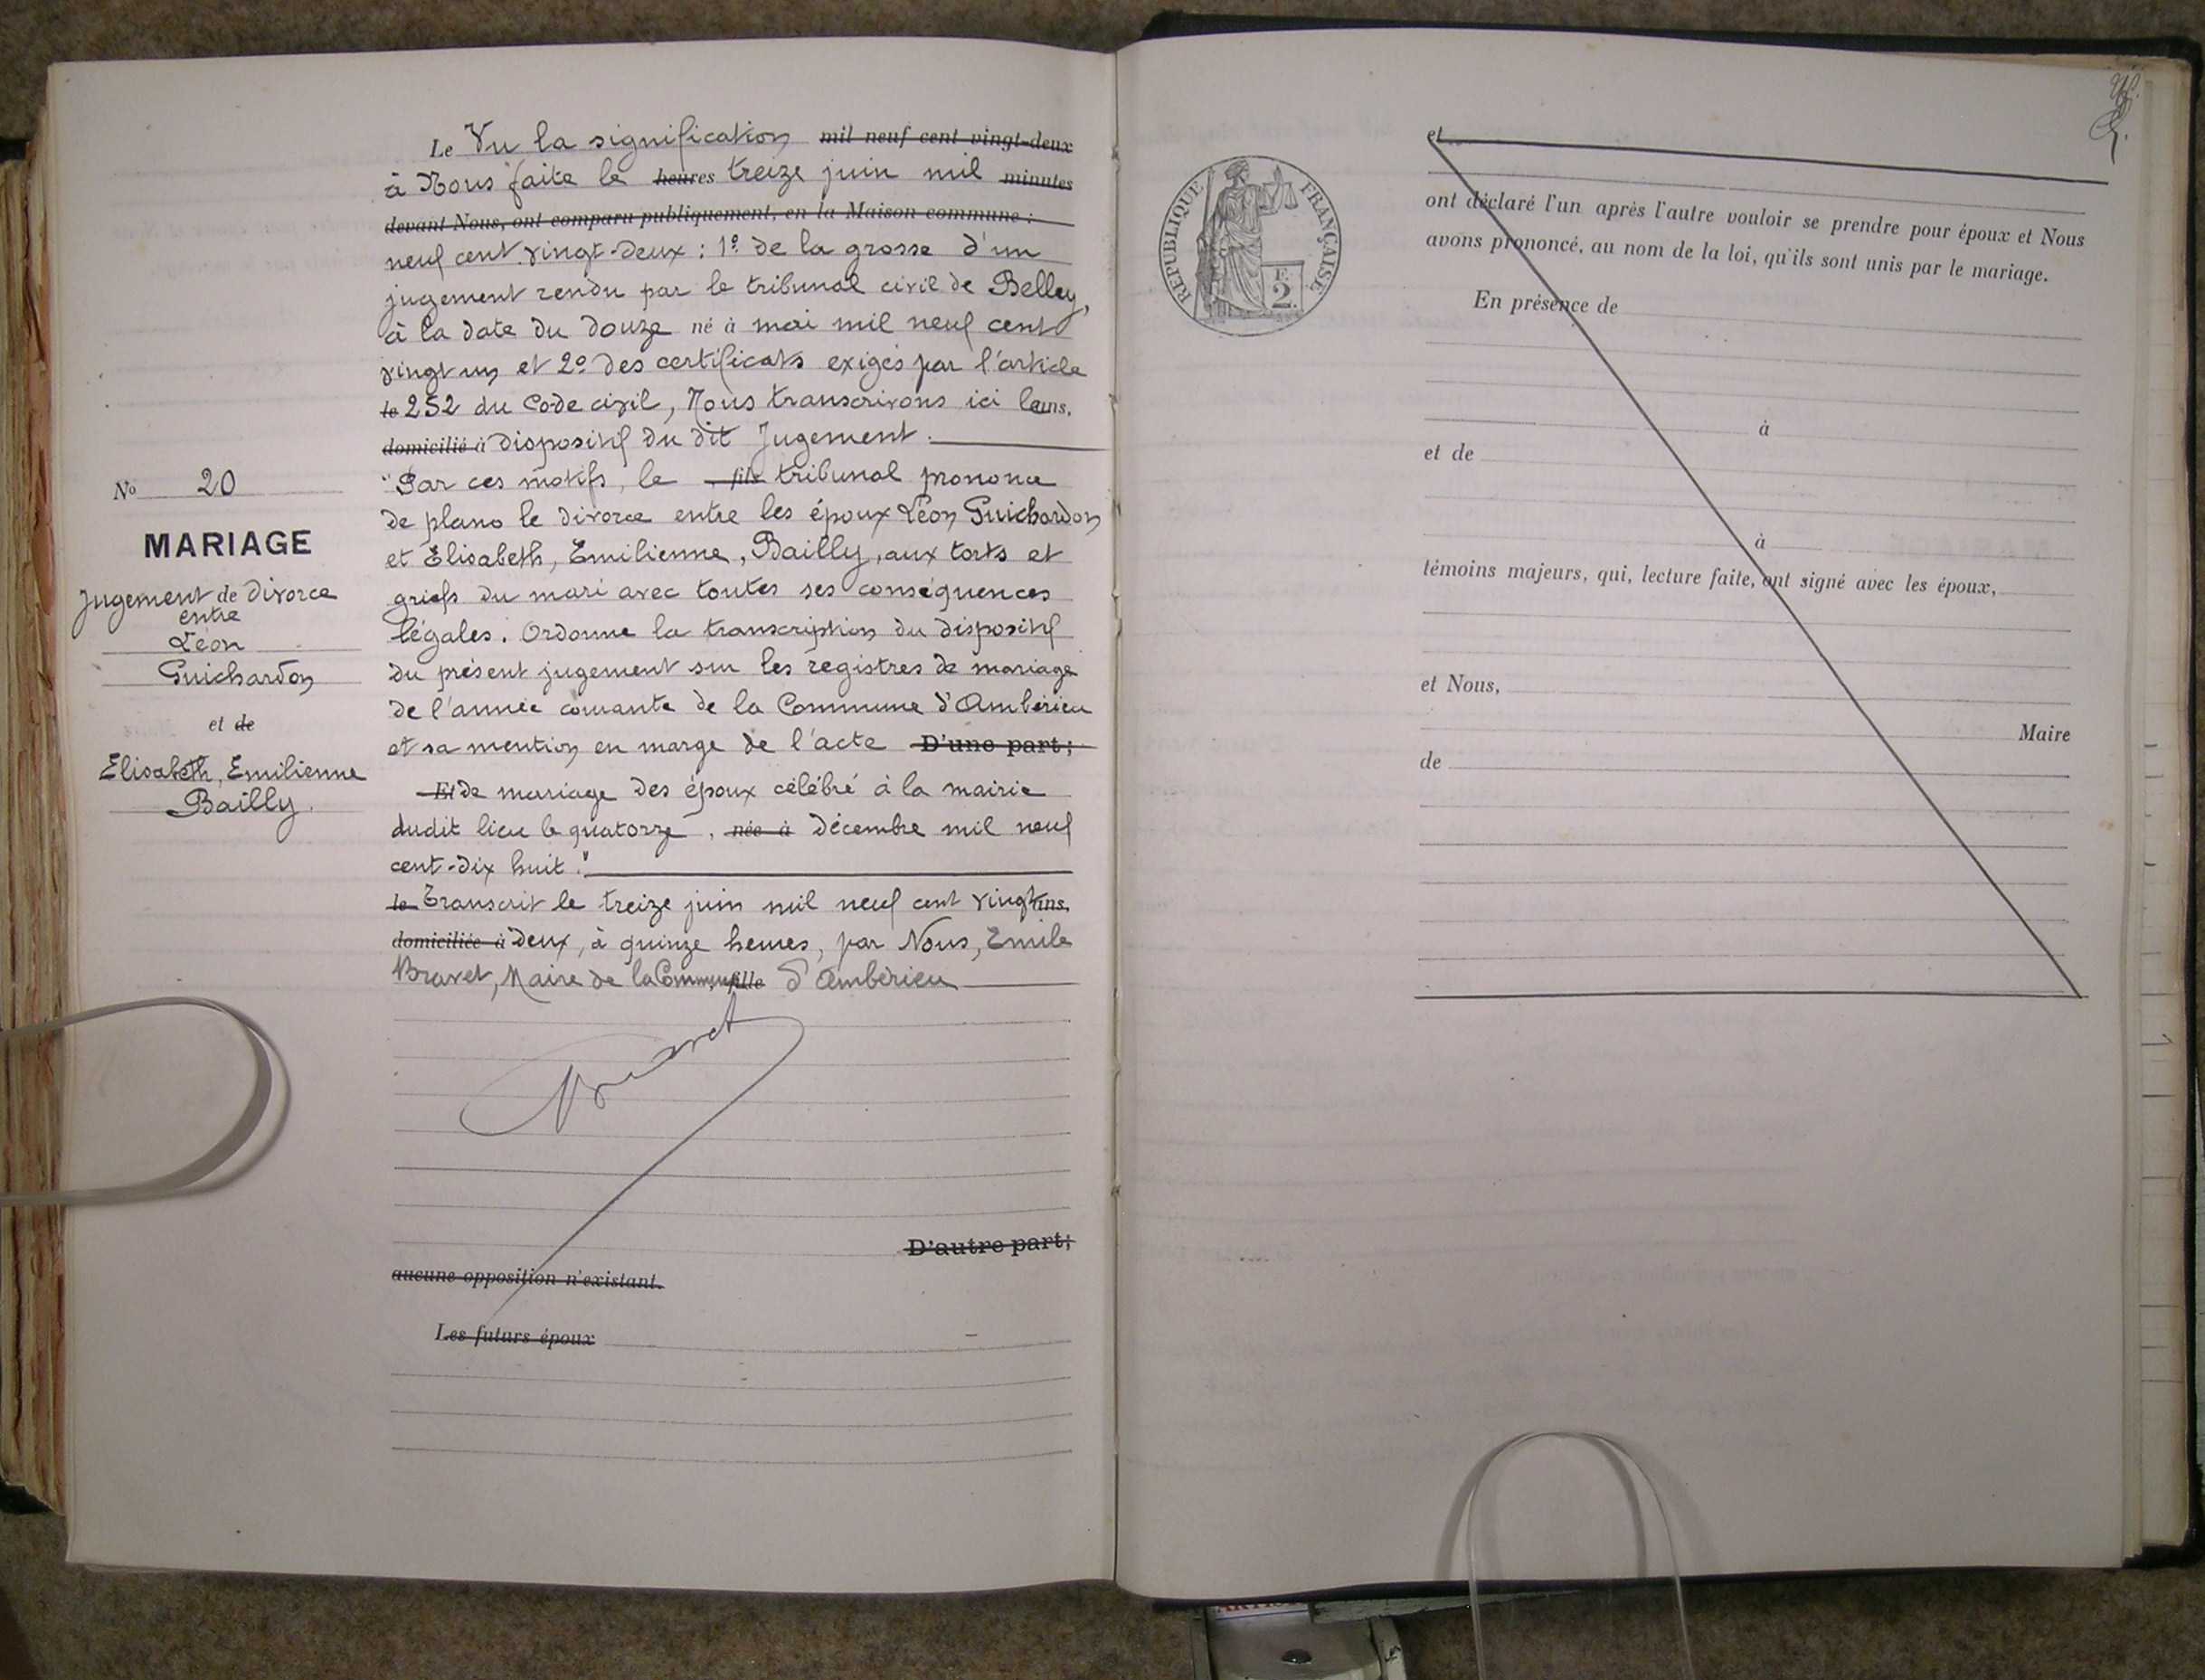 Le Vu la signification mil neuf cent vingt-deux
à Nous faite le heures treize juin mil minutes
devant Nous, ont comparu publiquement, en la Maison commune :
neuf cent vingt-deux : 1º de la grosse d'un
jugement rendu par le tribunal civil de Belley,
à la date du douze né à mai mil neuf cent
vingt un et 2º des certificats exigés par l'article
le 252 du Code civil, Nous transcrivons ici le ans,
domicilié à dispositif du dit Jugement.
"Par ces motifs, le fils tribunal prononce
de plano le divorce entre les époux Léon Guichardon
et Elisabeth, Emilienne, Bailly, aux torts et
griefs du mari avec toutes ses conséquences
légales. Ordonne la transcription du dispositif
du présent jugement sur les registres de mariage
de l'année courante de la Commune d'Ambérieu
et sa mention en marge de l'acte D'une part;
Et de mariage des époux célébré à la mairie
dudit lieu le quatorze, née à décembre mil neuf
cent-dix huit."
le Transcrit le treize juin mil neuf cent vingt ans,
domiciliée à deux, à quinze heures, par Nous, Emile
Bravet, Maire de la Commune fille d'Ambérieu
Bravet
D'autre part;
aucune opposition n'existant.
Les futurs époux
Nº 20
MARIAGE
Jugement de divorce
entre
Léon
Guichardon
et de
Elisabeth, Emilienne
Bailly.
RÉPUBLIQUE FRANÇAISE
F.
2
et
ont déclaré l'un après l'autre vouloir se prendre pour époux et Nous
avons prononcé, au nom de la loi, qu'ils sont unis par le mariage.
En présence de
à
et de
à
témoins majeurs, qui, lecture faite, ont signé avec les époux,
et Nous,
Maire
de